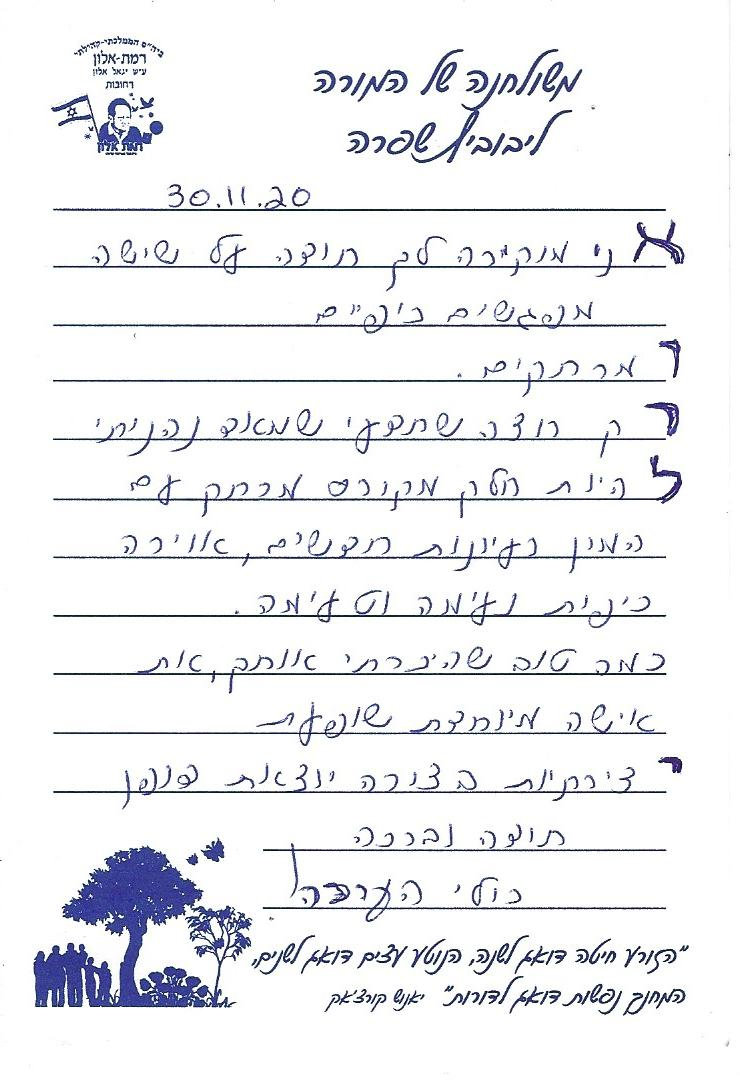 ביה"ס הממלכתי-קהילתי
רמת-אלון
ע"ש יגאל אלון
רחובות
רמת אלון
משולחנה של המורה
ליבוביץ שפרה
30.11.20
אני מוקירה לך תודה על שישה
מפגשים כיפיים
ומרתקים.
רק רוצה שתדעי שמאוד נהניתי
להיות חלק מקורס מרתק עם
המון רעיונות חדשים, אווירה
כיפית נעימה וטעימה.
כמה טוב שהיכרתי אותך, את
אישה מיוחדת שופעת
יצירתיות בצורה יוצאת דופן
תודה וברכה
כולי הערכה!
"הזורע חיטה דואג לשנה, הנוטע עצים דואג לשנים,
המחנך נפשות דואג לדורות" יאנוש קורצ'אק